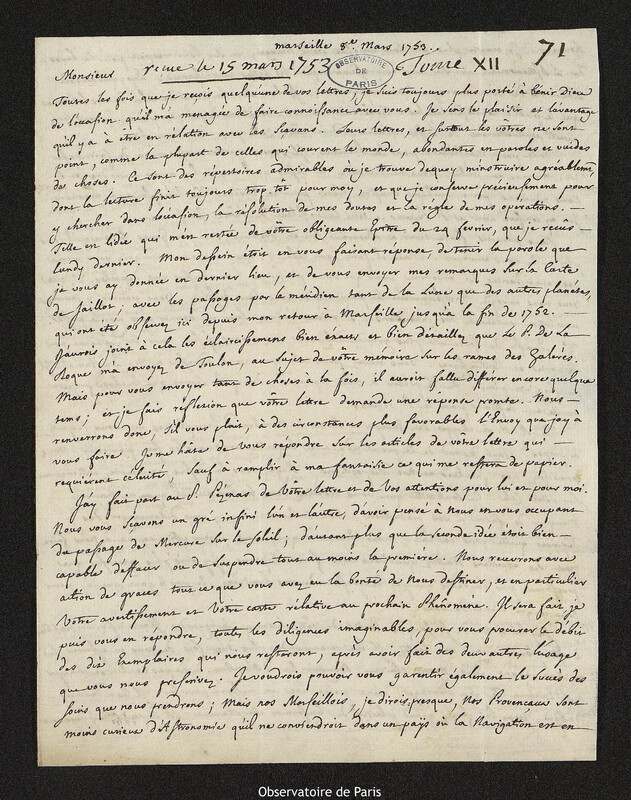 marseille 8e. Mars 1753.
71
Monsieur
recue le 15 mars 1753
OBSERVATOIRE DE PARIS
Tome XII
Toutes les fois que je recois quelqu'une de vos lettres, je suis toujours plus porté à bénir Dieu
de l'occasion qu'il m'a menagée de faire connoissance avec vous. Je sens le plaisir et l'avantage
qu'il y a à être en relation avec les Sçavans. Leurs lettres, et surtout les vôtres ne sont
point, comme la plupart de celles qui courent le monde, abondantes en paroles et vuides
de choses. Ce sont des répertoires admirables où je trouve dequoy m'instruire agréablemt,
dont la lecture finit toujours trop tôt pour moy, et que je conserve précieusement pour
y chercher dans l'occasion, la résolution de mes doutes et la règle de mes operations. —
Telle est l'idée qui m'est restée de vôtre obligeante Epitre du 24 fevrier, que je reçûs
lundy dernier. Mon dessein étoit en vous faisant réponse, de tenir la parole que
je vous ay donnée en dernier lieu, et de vous envoyer mes remarques sur la Carte
de Jaillot, avec les passages par le méridien tant de la Lune que des autres planetes,
qui ont été observez ici depuis mon retour à Marseille, jusqu'à la fin de 1752. —
J'aurois joint à cela les éclaircissemens bien exacts et bien détaillez que le P. De La
Roque m'a envoyez de Toulon, au sujet de vôtre memoire sur les rames des Galères.
Mais pour vous envoyer tant de choses à la fois, il auroit fallu différer encore quelque
tems; et je fais reflexion que vôtre lettre demande une reponse promte. Nous —
renverrons donc, s'il vous plait, à des circonstances plus favorables l'Envoy que j'ay à
vous faire. Je me hâte de vous répondre sur les articles de votre lettre qui —
requierent celérité, sauf à ramplir à ma fantaisie ce qui me restera de papier.
J'ay fait part au P. Pézenas de Vôtre lettre et de Vos attentions pour lui et pour moi.
Nous vous sçavons un gré infini l'un et l'autre, d'avoir pensé à Nous en vous occupant
du passage de Mercure sur le Soleil; d'autant plus que la seconde idée étoit bien —
capable d'effacer ou de suspendre tout au moins la première. Nous recevrons avec
action de graces tout ce que vous avez eu la bonté de Nous destiner, et en particulier
Votre avertissement et Votre carte rélative au prochain Phénomène. Il sera fait, je
puis vous en repondre, toutes les diligences imaginables, pour vous procurer le débit
des dix Exemplaires qui nous resteront, après avoir fait des deux autres l'usage
que vous nous prescrivez. Je voudrois pouvoir vous garentir également le succès des
soins que nous prendrons; Mais nos Marseillois, je dirois presque, nos Provençaux sont
moins curieux d'Astronomie qu'il ne conviendroit dans un pays où la Navigation est en
Observatoire de Paris